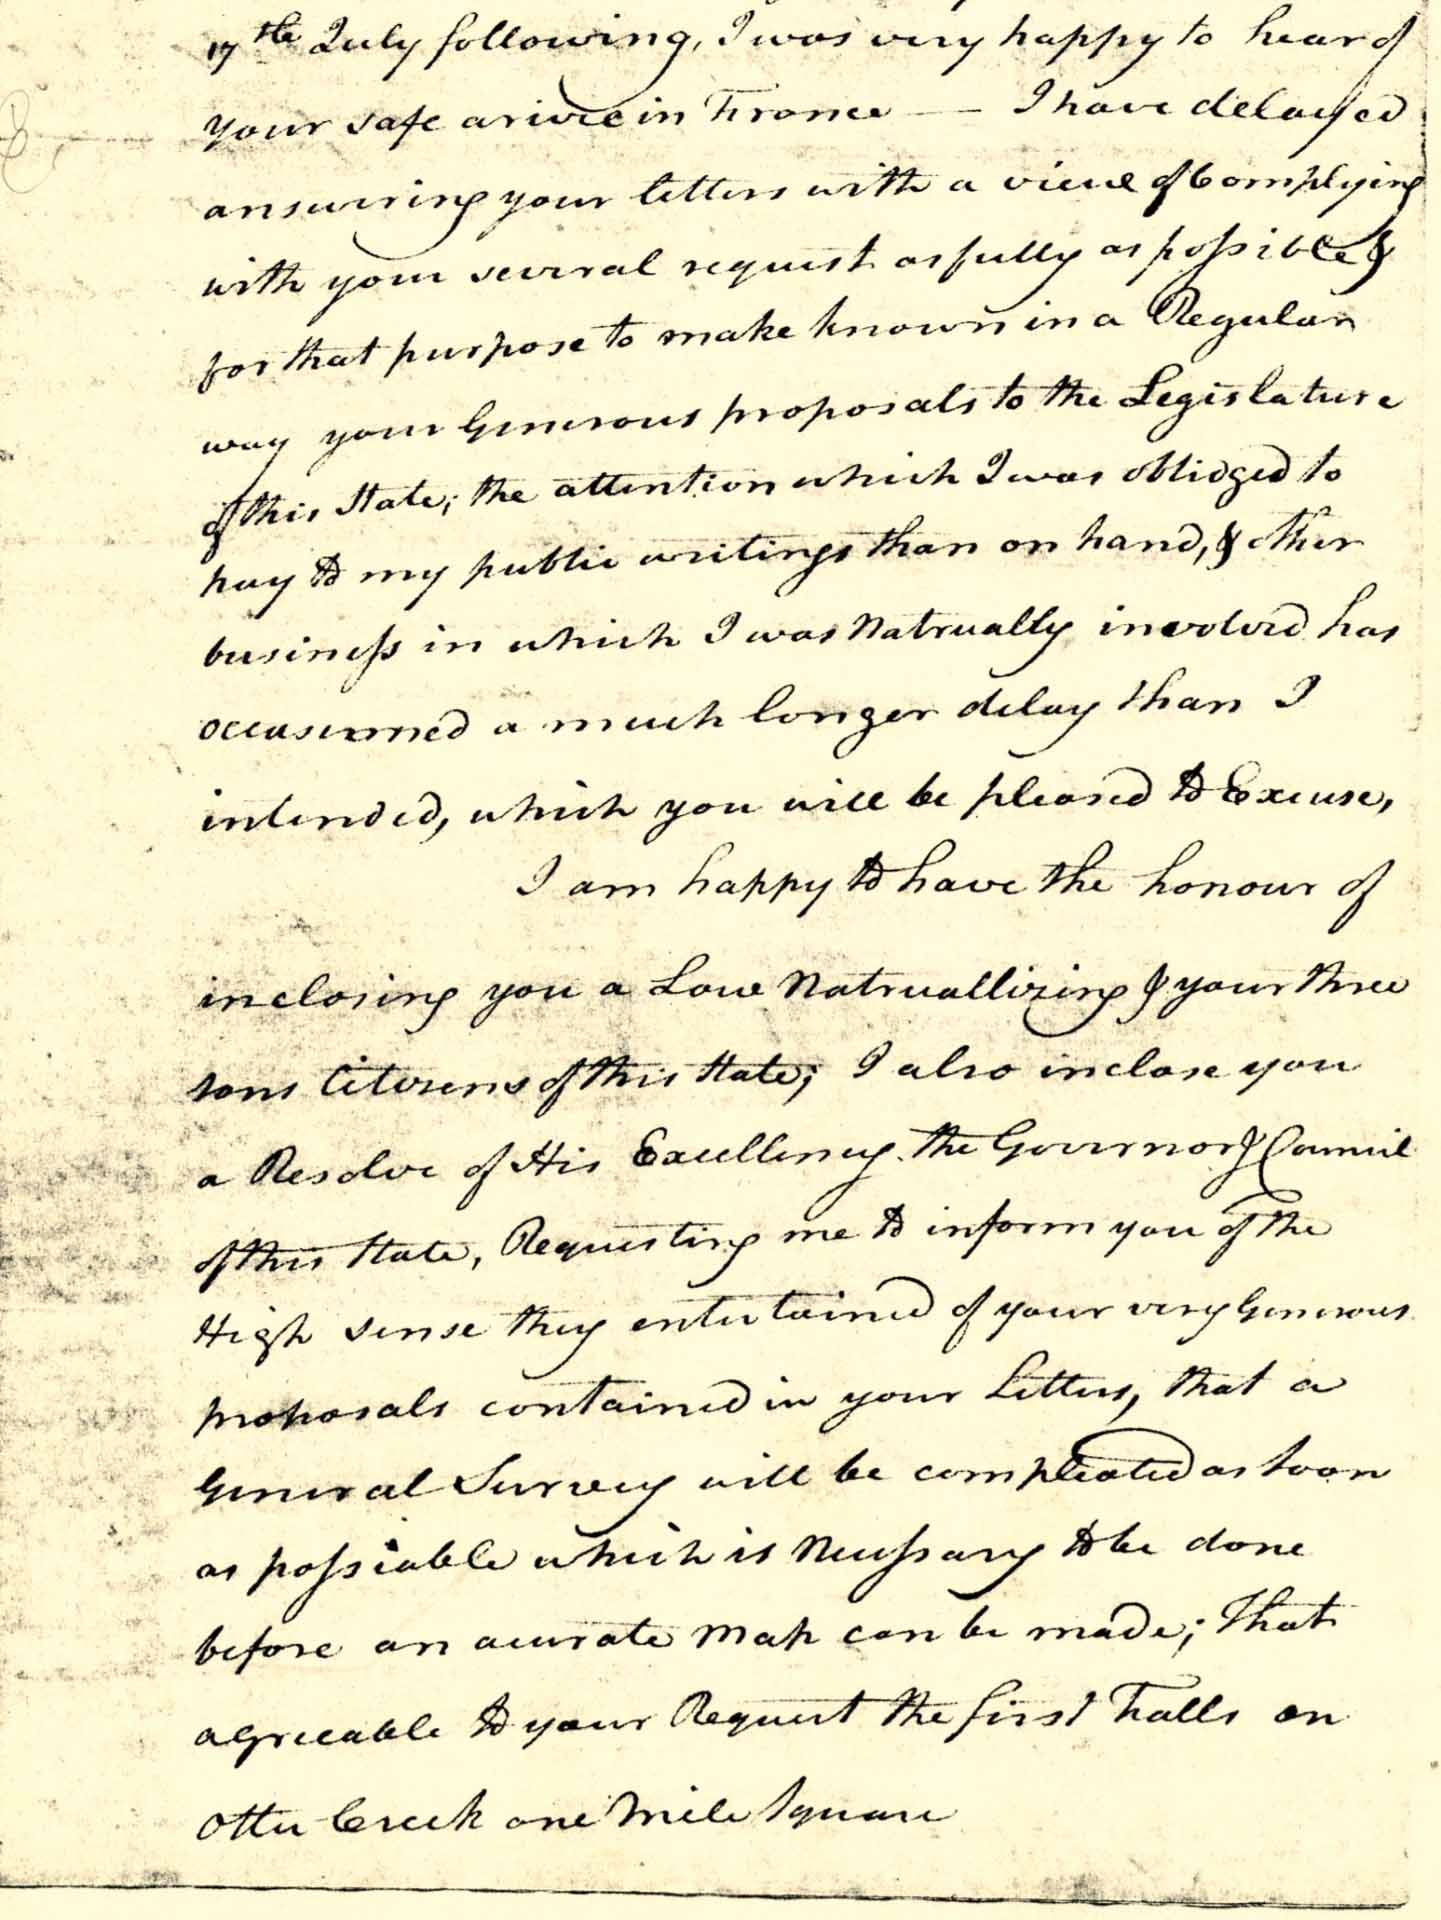 17th July following, I was very happy to hear of
your safe arivee in France — I have delayed
answering your letters with a view of Complying
with your several request as fully as possible &
for that purpose to make known in a Regular
way your Generous proposals to the Legislature
of this State; the attention which I was oblidged to
pay to my public writings than on hand, & other
business in which I was Natrually involved has
occasinned a much longer delay than I
intended, which you will be pleased to Excuse,
I am happy to have the honour of
inclosing you a Law Natruallizing & your three
sons Citizens of this State; I also inclose you
a Resolve of His Excellency the Governor & Council
of this State, Requesting me to inform you of the
High sense they entertained of your very Generous
proposals contained in your Letters, that a
General Survey will be compleated as soon
as possiable which is Necessary to be done
before an acurate Map can be made; That
agreeable to your Request the first Falls on
Otter Creek one Mile Square